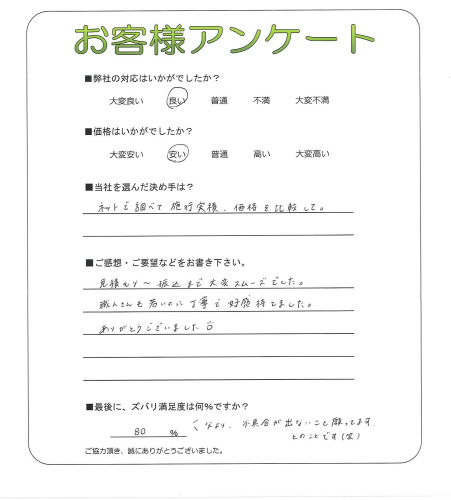 お客様アンケート
■弊社の対応はいかがでしたか？
大変良い 良い 普通 不満 大変不満
■価格はいかがでしたか？
大変安い 安い 普通 高い 大変高い
■当社を選んだ決め手は？
ネットで調べて施行実積、価格を比較して。
■ご感想・ご要望などをお書き下さい。
見積もり〜振込まで大変スムーズでした。
職人さんも若いのに丁寧で好感持てました。
ありがとうございました
■最後に、ズバリ満足度は何%ですか？
80 % 不具合が出ないこと願ってます、
とのことです(笑)
ご協力頂き、誠にありがとうございました。